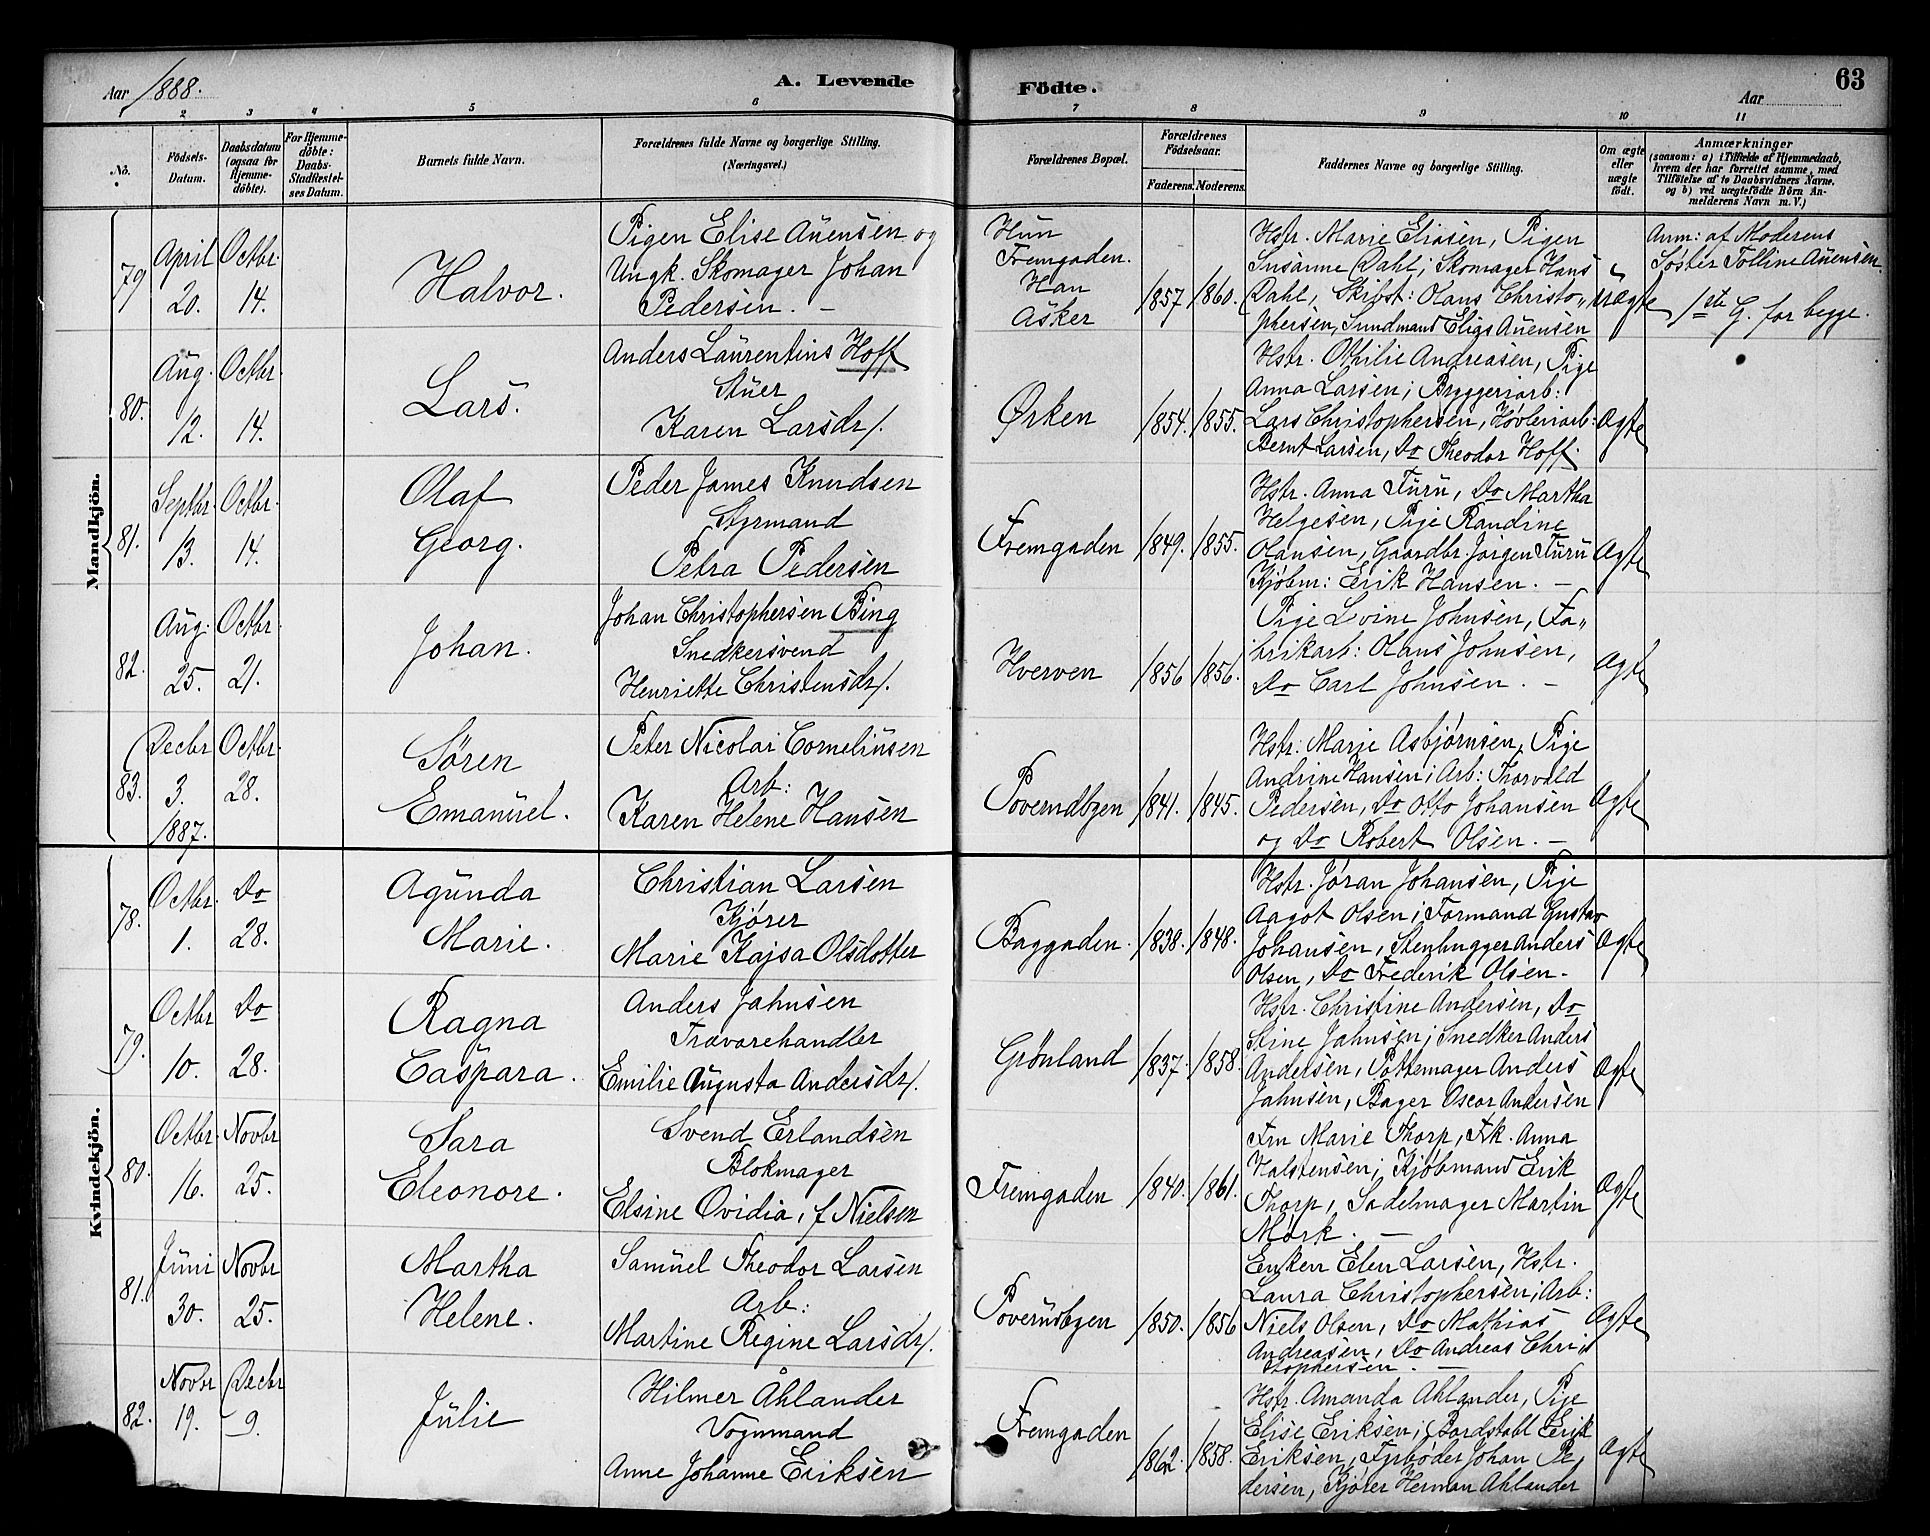 Aar 1888.
A. Levende
Födte.
Aar
63
1 2 3 4 5 6 7 8 9 10 11
No.
Födsels-
Datum.
Daabsdatum
(ogsaa for
Hjemme-
döbte).
For Hjemme-
döbte:
Daabs-
Stadfæstel-
ses Datum.
Barnets fulde Navn.
Forældrenes fulde Navne og borgerlige Stilling.
(Næringsvei.)
Forældrenes Bopæl.
Forældrenes
Födselsaar.
Faderens. Moderens.
Faddernes Navne og borgerlige Stilling.
Om ægte
eller
uægte
födt.
Anmærkninger
(saasom: a) i Tilfælde af Hjemmedaab,
hvem der har forrettet samme, med
Tilföielse af to Daabsvidners Navne,
og b) ved uægtefödte Börn An-
melderens Navn m. V.)
Mandkjön.
79
April
20.
Octbr.
14.
Halvor.
Pigen Elise Auensen og
Ungk. Skomager Johan
Pedersen. –
Hun
Fremgaden.
Han
Asker
1857 1860.
Hstr. Marie Eliasen, Pigen
Susanne Dahl; Skomager Hans
Dahl, Skibst: Olaus Christo„
phersen, Sundmand Elias Auensen
Uægte
Anm: af Moderens
Søster Tolline Auensen.
1ste G. for begge.
80.
Aug.
12.
Octbr.
14.
Lars.
Anders Laurentius Hoff
Stuer
Karen Larsdr/.
Ørken
1854. 1855.
Hstr. Othilie Andreasen, Pige
Anna Larsen; Bryggeriarb:
Lars Christophersen, Høvleriarb:
Bernt Larsen, Do Theodor Hoff.
Ægte
81.
Septbr.
13.
Octbr.
14.
Olaf
Georg.
Peder James Knudsen
Styrmand
Petra Pedersen
Fremgaden
1849. 1855.
Hstr. Anna Furu, Do Martha
Helgesen, Pige Randine
Olausen, Gaardbr. Jørgen Furu
Kjøbm: Erik Hansen. –
Ægte
82.
Aug.
25.
Octbr.
21.
Johan.
Johan Christophersen Bing
Snedkersvend
Henriette Christensdr/.
Hverven
1856 1856.
Pige Lovine Johnsen, Fa„
brikarb: Olaus Johnsen,
Do Carl Johnsen. –
Ægte
83.
Decbr
3.
1887.
Octbr.
28.
Søren
Emanuel.
Peter Nicolai Corneliusen
Arb:
Karen Helene Hansen
Poverudbyen
1841. 1845.
Hstr: Marie Asbjørnsen, Pige
Andrine Hansen; Arb: Thorvald
Pedersen, Do Otto Johansen
og Do Robert Olsen. –
Ægte
Kvindekjön.
78.
Octbr.
1.
Do
28.
Agunda
Marie.
Christian Larsen
Kjører
Marie Kajsa Olsdotter
Baggaden.
1838. 1848.
Hstr. Jøran Johansen, Pige
Aagot Olsen; Formand Gustav
Johansen, Stenhugger Anders
Olsen, Do Frederik Olsen.
Ægte
79.
Octbr
10.
Do
28.
Ragna
Caspara.
Anders Jahnsen
Trævarehandler
Emilie Augusta Andersdr/.
Grønland
1837. 1858.
Hstr. Christine Andersen, Do
Stine Jahnsen; Snedker Anders
Andersen, Pottemager Anders
Jahnsen, Bager Oscar Andersen
Ægte
80.
Octbr.
16.
Novbr
25.
Sara
Eleonore.
Svend Erlandsen
Blokmager
Elsine Ovidia, f Nielsen
Fremgaden
1840. 1861.
Fru Marie Thorp, Fk. Anna
Halstensen; Kjøbmand Erik
Thorp, Sadelmager Martin
Mørk. –
Ægte
81.
Juni
30.
Novbr
25.
Martha
Helene.
Samuel Theodor Larsen
Arb:
Martine Regine Larsdr/.
Poverudbyen
1850. 1856
Enken Elen Larsen, Hstr.
Laura Christophersen; Arb:
Niels Olsen, Do Mathias
Andreasen, Do Andreas Chri„
stophersen. –
Ægte
82.
Novbr
19.
Decbr
9.
Julie
Hilmer Åhlander
Vognmand
Anne Johanne Eriksen
Fremgaden
1862. 1858.
Hstr. Amanda Ahlander, Pige
Elise Eriksen; Bordstabl Erik
Eriksen, Fyrbøder Johan Pe„
dersen, Kjører Herman Ahlander
Ægte